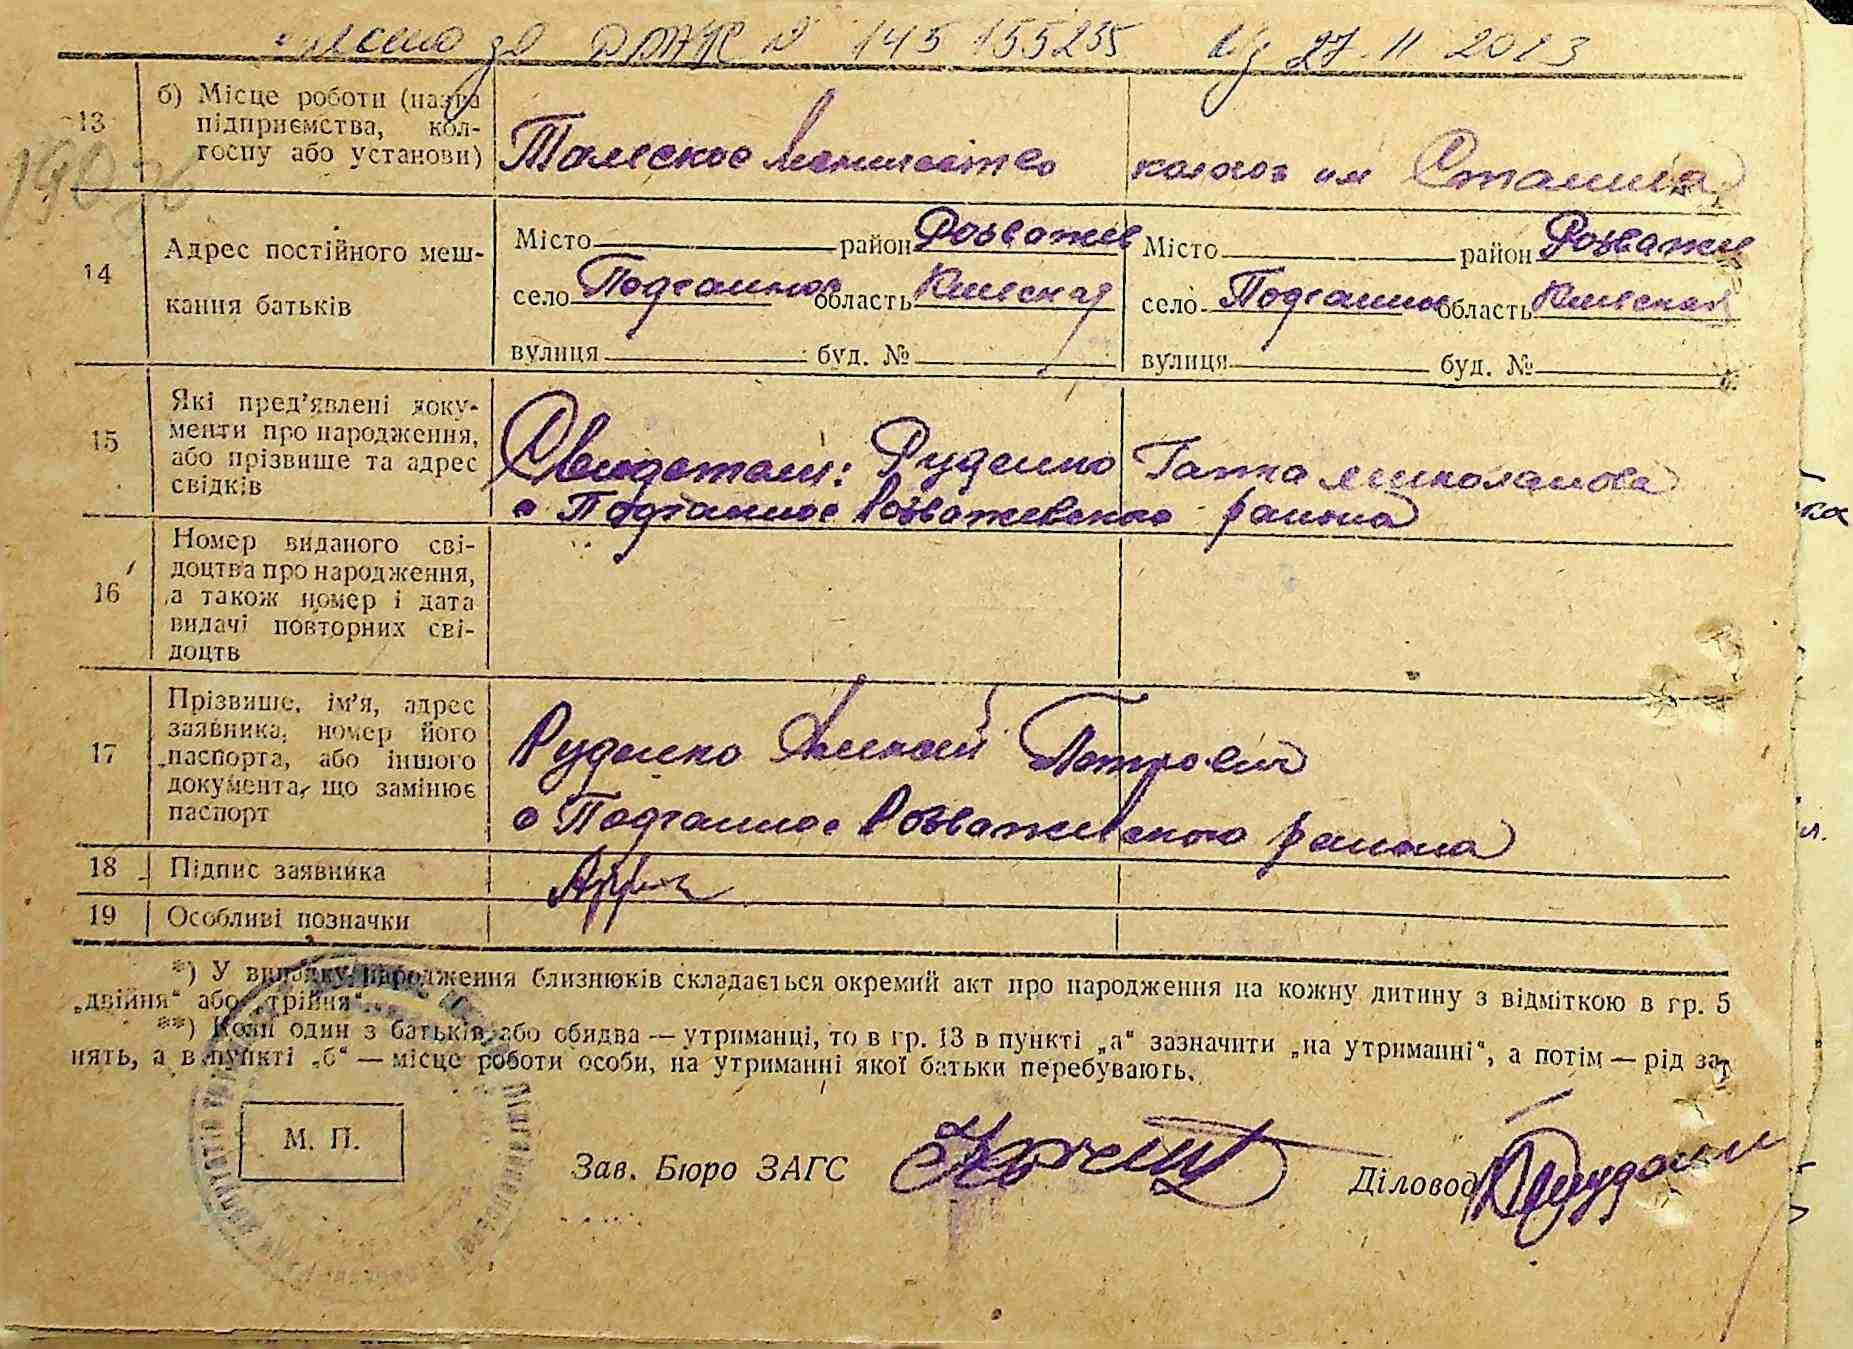 до ДРАЦС № 145 155235 від 27.11 2013
13
б) Місце роботи (назва
підприємства, кол-
госпу або установи)
лесничество
колхоз им Сталина
14
Адрес постійного меш-
кання батьків
Місто район Розважев
село Подганное область Киевская
вулиця буд. №
Місто район Розваже
село Подганное область Киевская
вулиця буд. №
15
Які пред'явлені доку-
менти про народження,
або прізвище та адрес
свідків
Свидетели: Руденко
с Подганное Розважевского района
16
Номер виданого сві-
доцтва про народження,
а також номер і дата
видачі повторних сві-
доцтв
17
Прізвище, ім'я, адрес
заявника, номер його
паспорта, або іншого
документа, що замінює
паспорт
Руденко Петрович
с Подганное Розважевского района
18
Підпис заявника
19
Особливі позначки
*) У випадку народження близнюків складається окремий акт про народження на кожну дитину з відміткою в гр. 5
„двійня“ або „трійня“.
**) Коли один з батьків або обидва — утриманці, то в гр. 13 в пункті „а“ зазначити „на утриманні“, а потім — рід за-
нять, а в пункті „б“ — місце роботи особи, на утриманні якої батьки перебувають.
М. П.
Зав. Бюро ЗАГС
Діловод